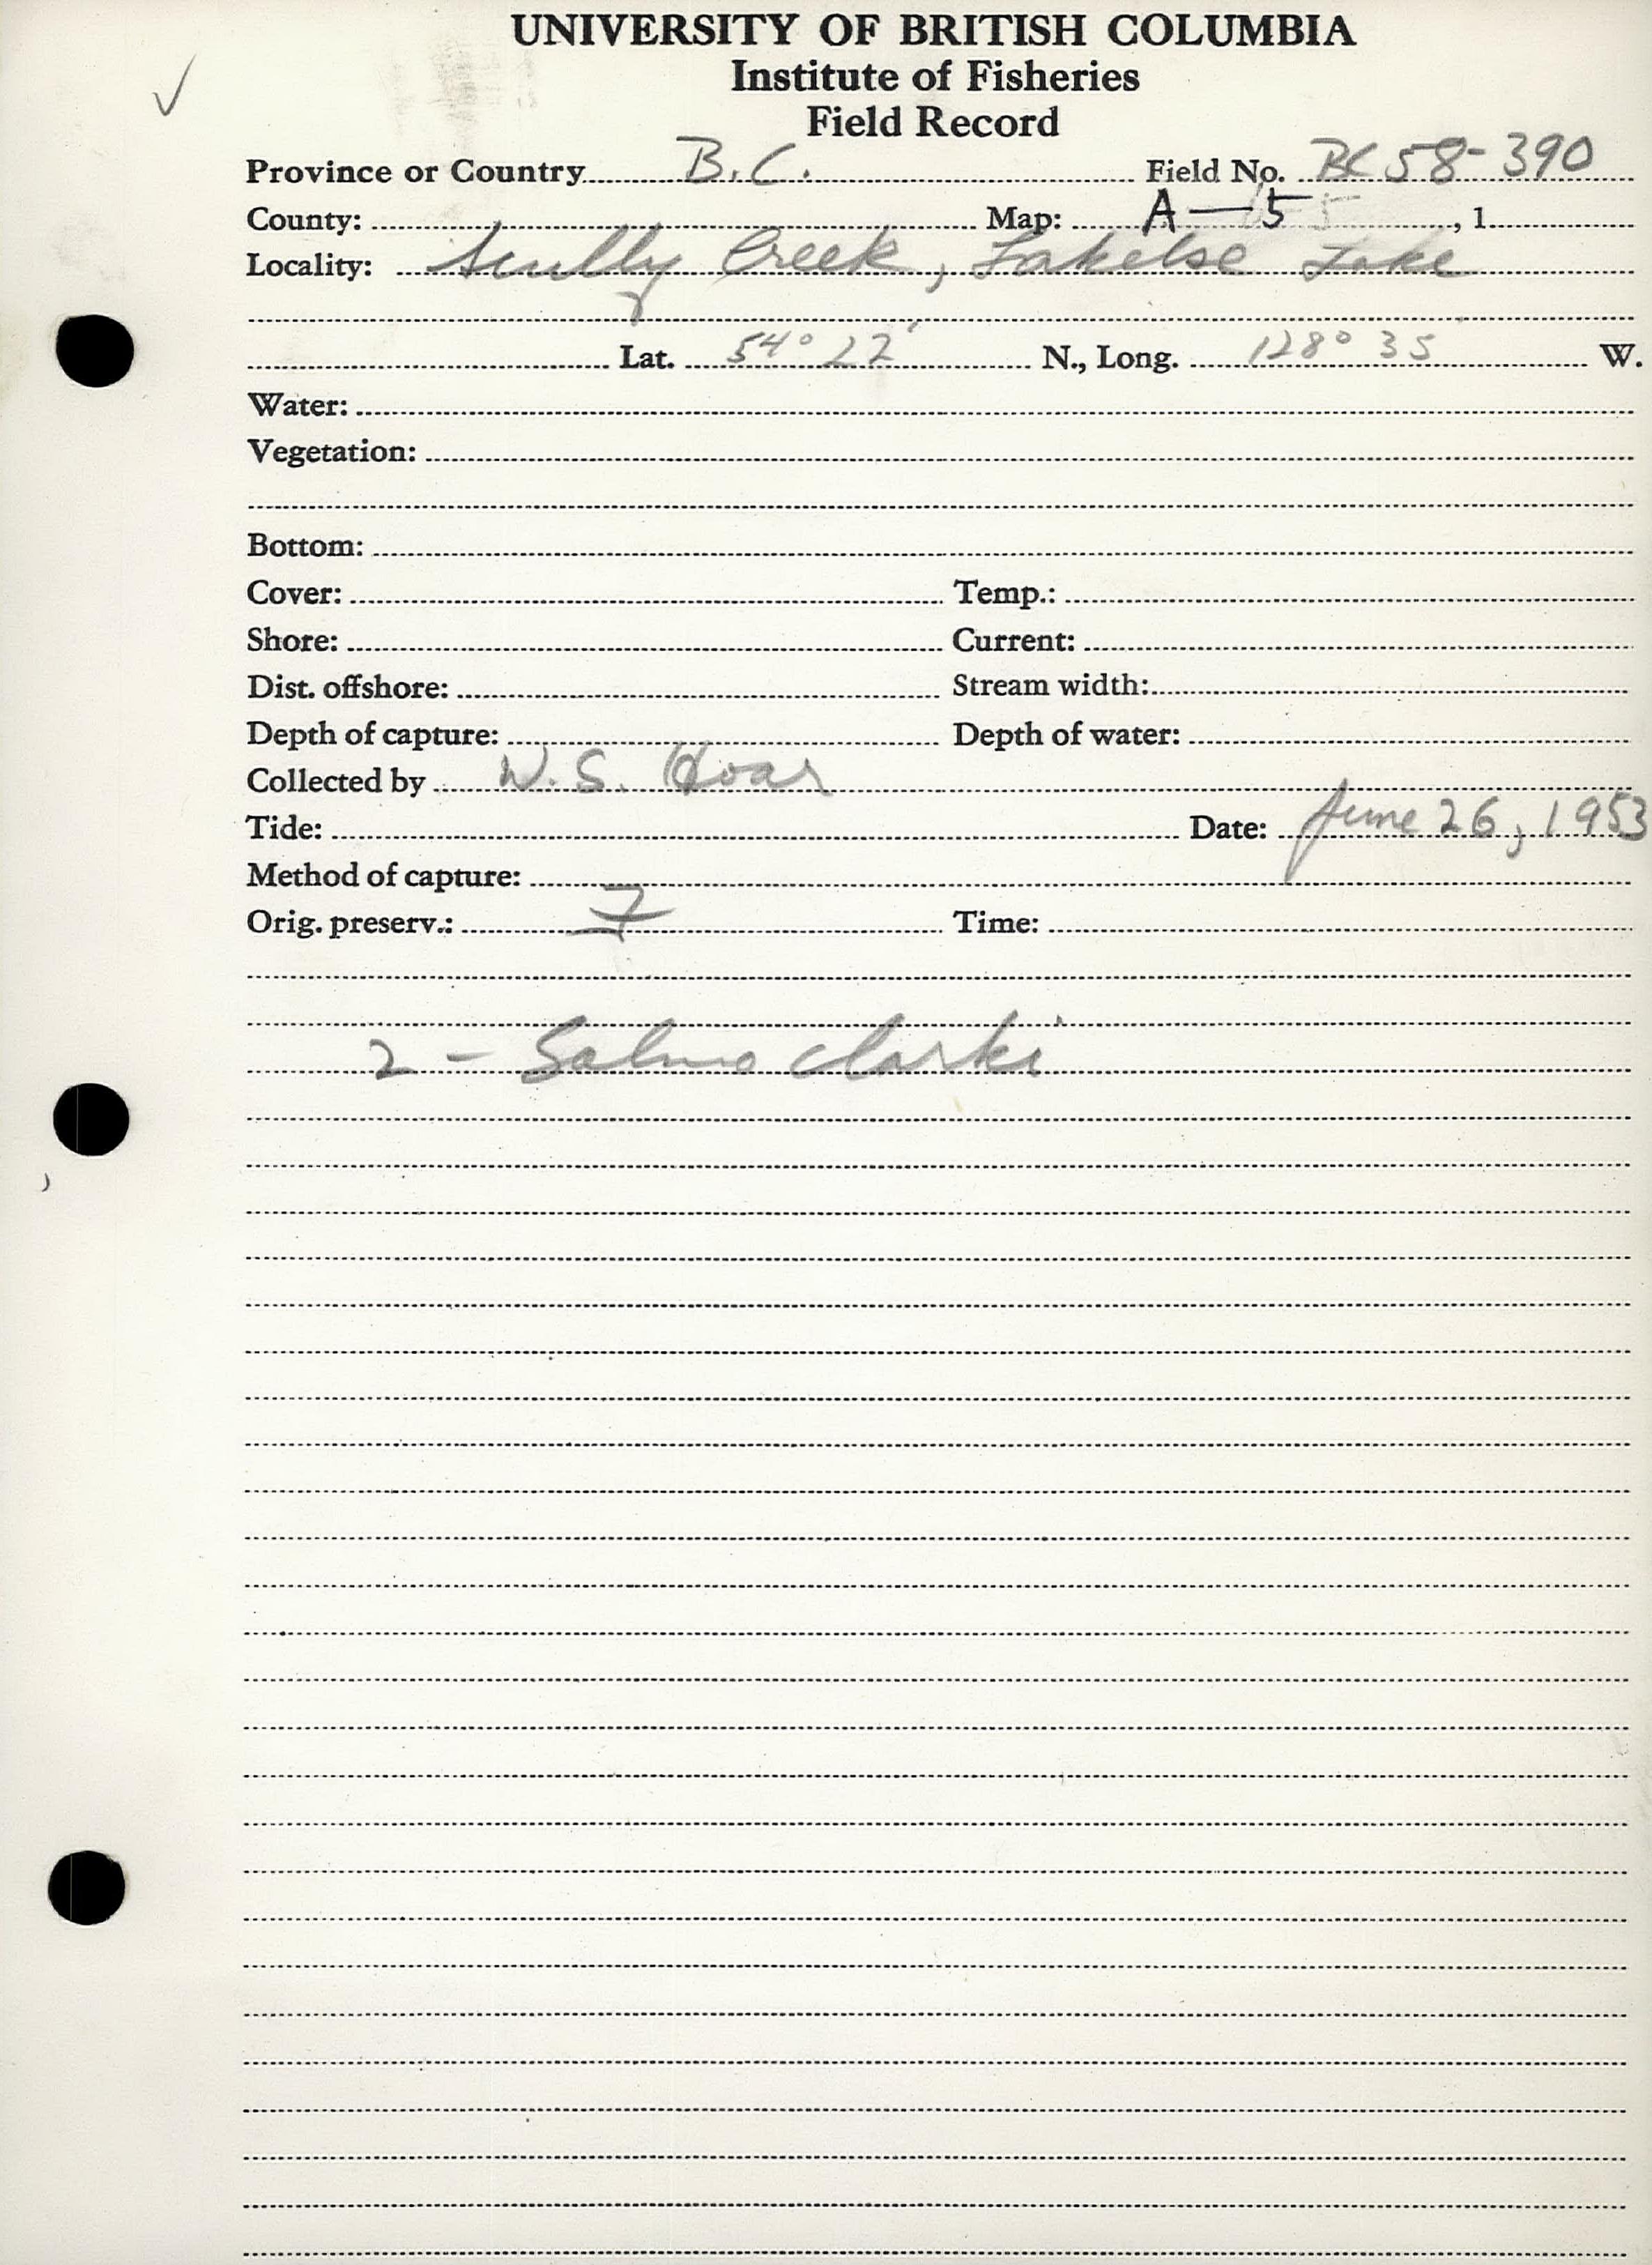 ✓
UNIVERSITY OF BRITISH COLUMBIA
Institute of Fisheries
Field Record
Province or Country B.C. Field No. BC 58-390
County: Map: A—5 , 1
Locality: Scully Creek, Lakelse Lake
Lat. 54° 22' N., Long. 128° 35' W.
Water:
Vegetation:
Bottom:
Cover: Temp.:
Shore: Current:
Dist. offshore: Stream width:
Depth of capture: Depth of water:
Collected by W. S. Hoar
Tide: Date: June 26, 1953
Method of capture:
Orig. preserv.: Time:
2 - Salmo clarki